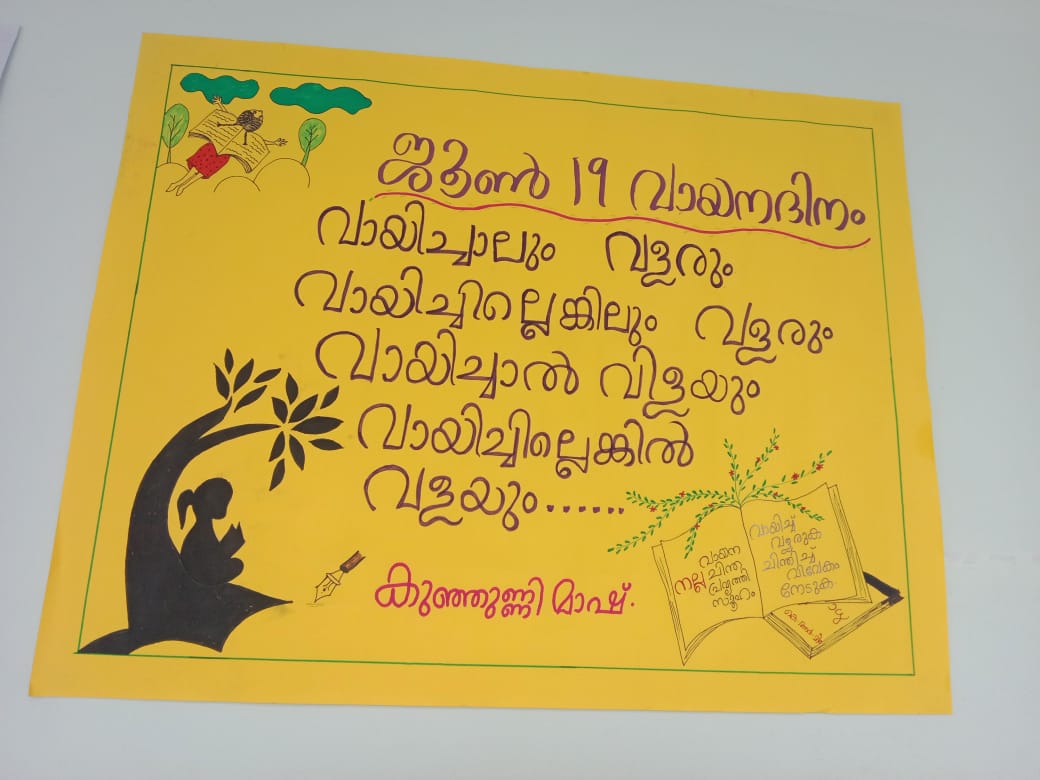 ജൂൺ 19 വായനദിനം
വായിച്ചാലും വളരും
വായിച്ചില്ലെങ്കിലും വളരും
വായിച്ചാൽ വിളയും
വായിച്ചില്ലെങ്കിൽ
വളയും......
കുഞ്ഞുണ്ണി മാഷ്.
വായന
നല്ല ചിന്ത
പ്രവൃത്തി
സമൂഹം
വായിച്ച്
വളരുക
ചിന്തിച്ച്
വിവേകം
നേടുക